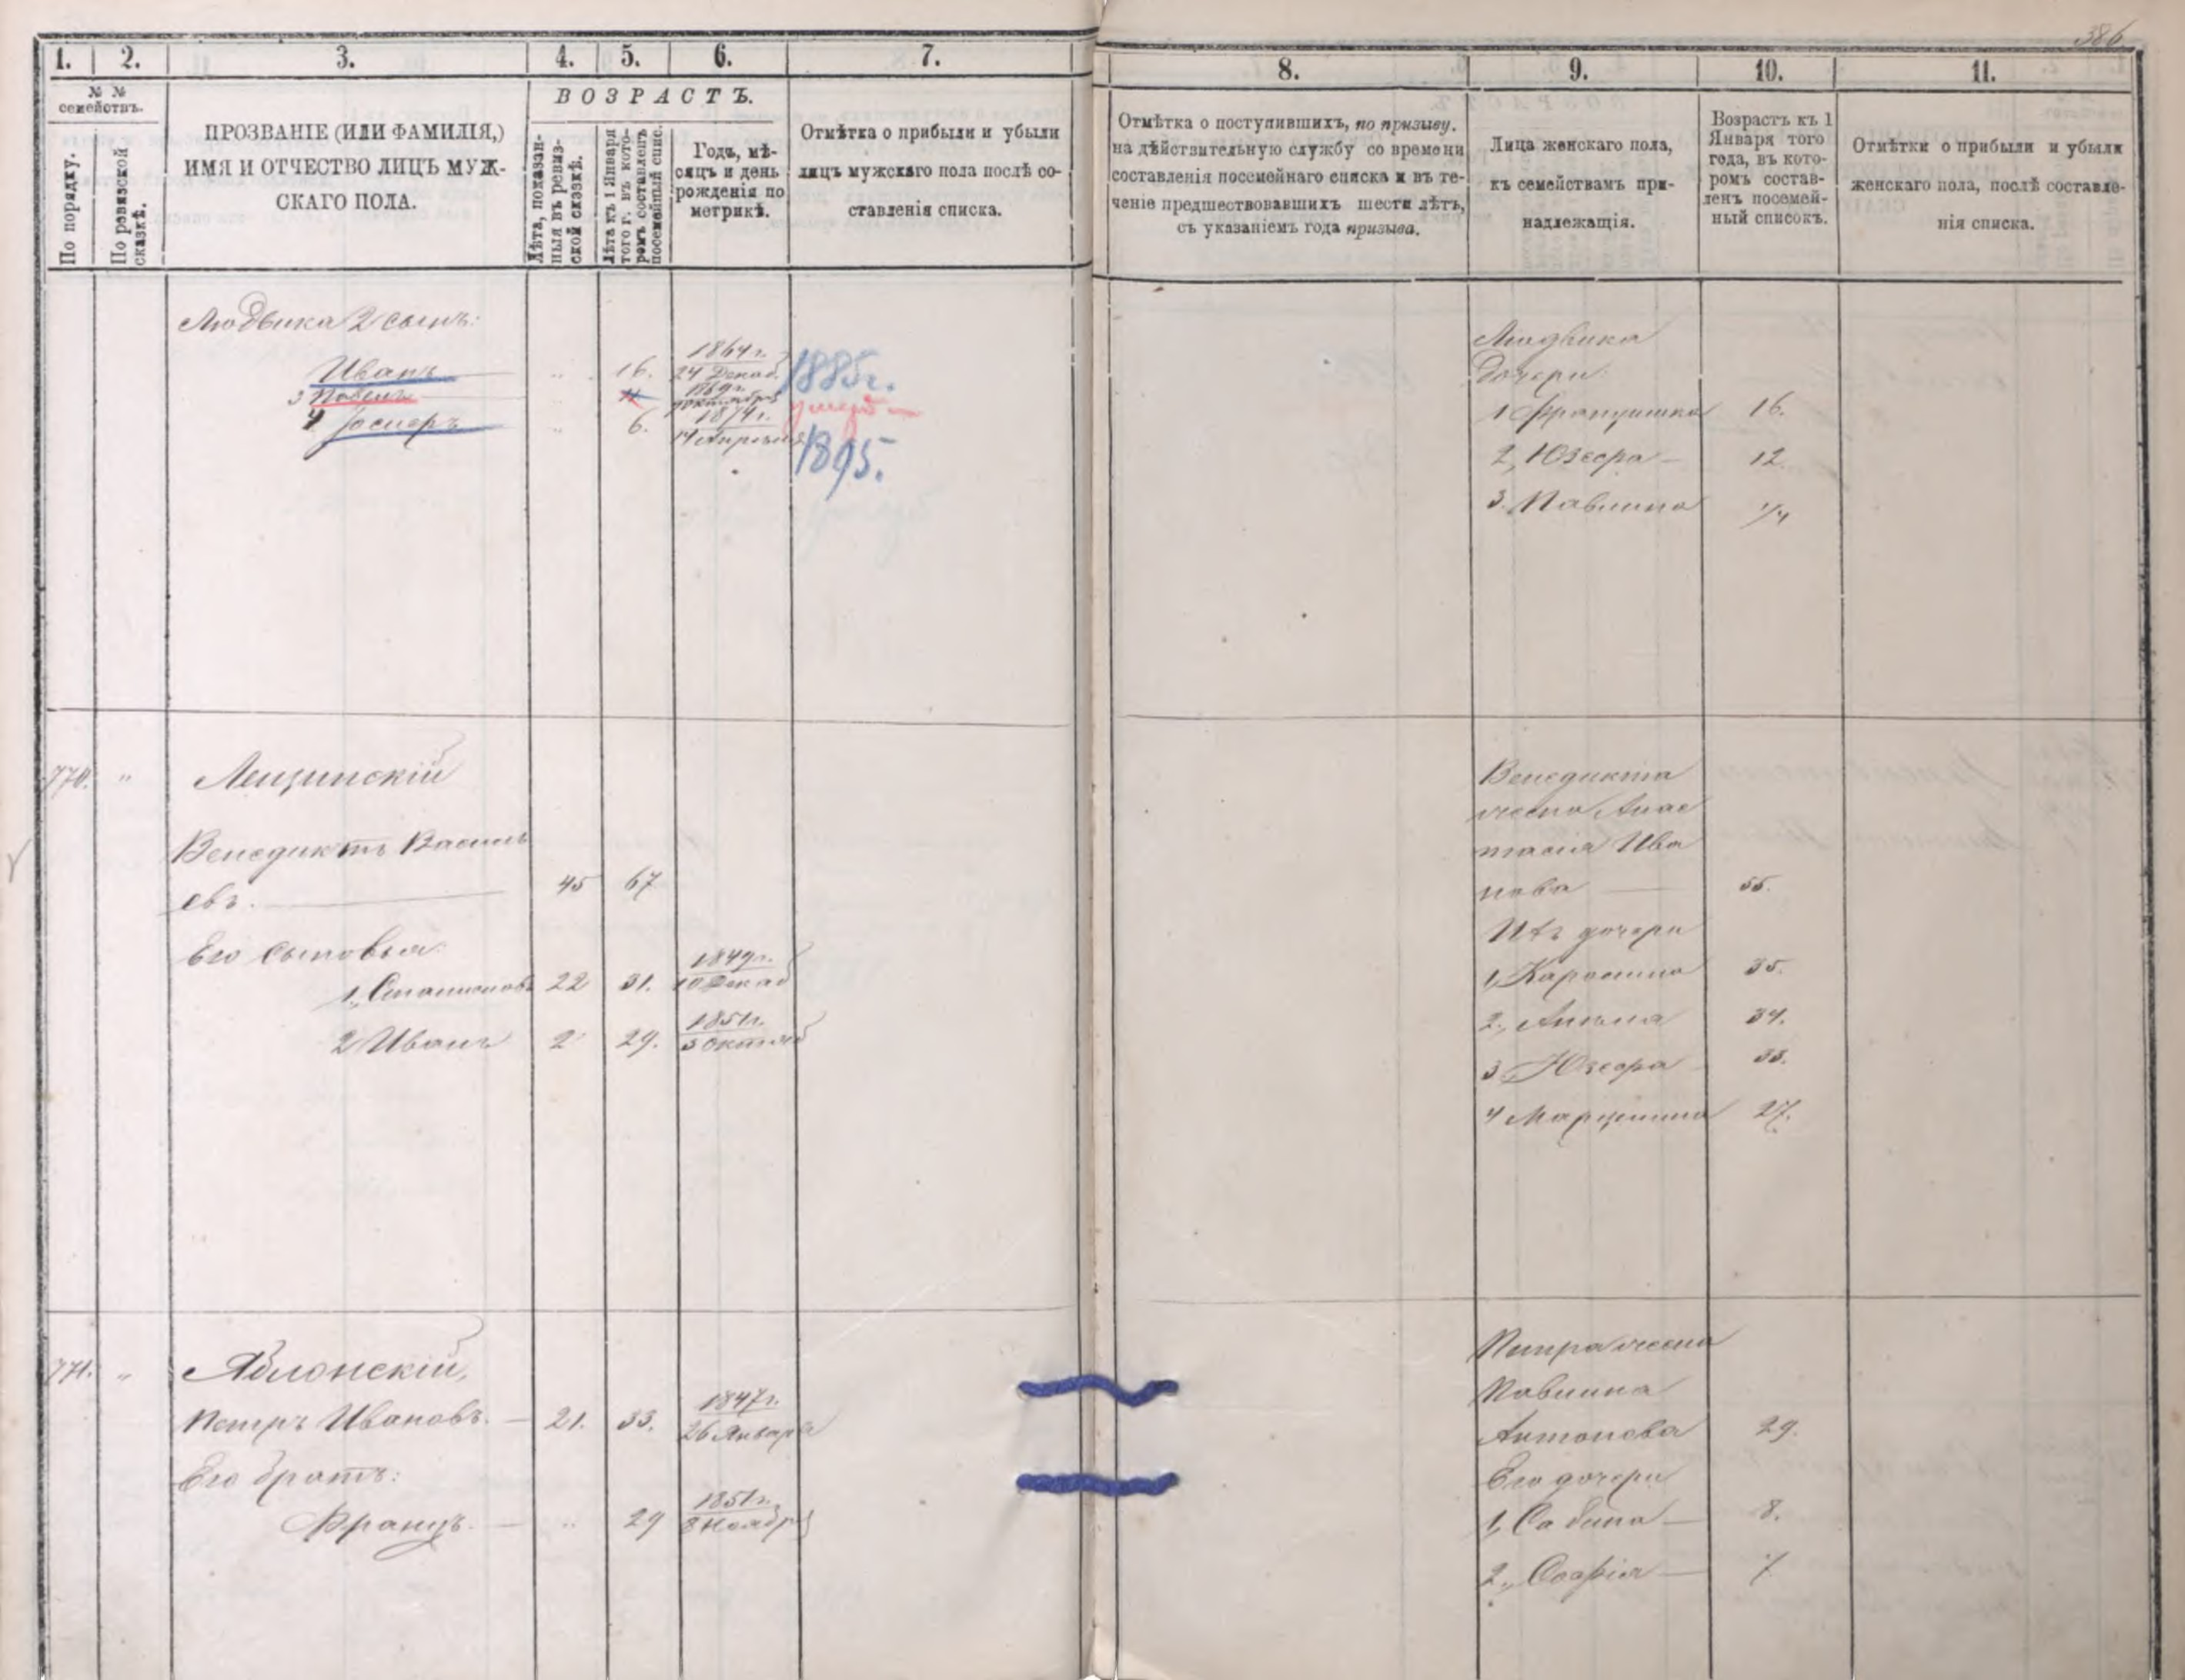 386.
1. 2. 3. 4. 5. 6. 7.
№ №
семействъ.
По порядку.
По ревизской
сказкѣ.
ПРОЗВАНІЕ (ИЛИ ФАМИЛІЯ,)
ИМЯ И ОТЧЕСТВО ЛИЦЪ МУЖ-
СКАГО ПОЛА.
ВОЗРАСТЪ.
Лѣта, показан-
ныя въ ревиз-
ской сказкѣ.
Лѣта къ 1 Января
того г. въ кото-
ромъ составленъ
посемейный спис.
Годъ, мѣ-
сяцъ и день
рожденія по
метрикѣ.
Отмѣтка о прибыли и убыли
лицъ мужскаго пола послѣ со-
ставленія списка.
Людвика 2 сынъ:
Иванъ 16. 1864 г. 24 Декаб. 1885г.
3 Павелъ 11 1869 г. октября умеръ
4 Іосифъ 6. 1874 г. 14 Апрѣля 1895.
770. " Лещинскій
Венедиктъ Василь
евъ. 45 67
Его сыновья:
1., Станиславъ 22 31. 1849 г. 10 Декаб
2 Иванъ 2 29. 1851 г. 3 Октяб
771. " Яблонскій,
Петръ Ивановъ. 21. 33. 1847 г. 26 Января
Его братъ:
Францъ. " 29 1851 г. 8 Ноября
8. 9. 10. 11.
Отмѣтка о поступившихъ, по призыву.
на дѣйствительную службу со времени
составленія посемейнаго списка и въ те-
ченіе предшествовавшихъ шести лѣтъ,
съ указаніемъ года призыва.
Лица женскаго пола,
къ семействамъ при-
надлежащія.
Возрастъ къ 1
Января того
года, въ кото-
ромъ состав-
ленъ посемей-
ный списокъ.
Отмѣтки о прибыли и убыли
женскаго пола, послѣ составле-
нія списка.
Людвика
дочери:
1 Францишка 16.
2, Юзефа 12.
3. Павлина 1/4
Венедикта
жена Анас
тасія Ива
нова 55.
Ихъ дочери
1, Каролина 35.
2., Анеля 34.
3., Юзефа 33.
4 Марцелина 27.
Петра жена
Павлина
Антонова 29.
Его дочери
1, Сабина 8.
2., Софія 7